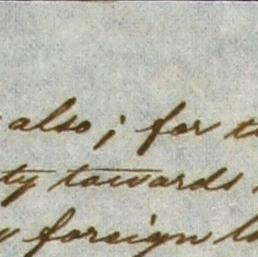 also; for
ty towards
foreign